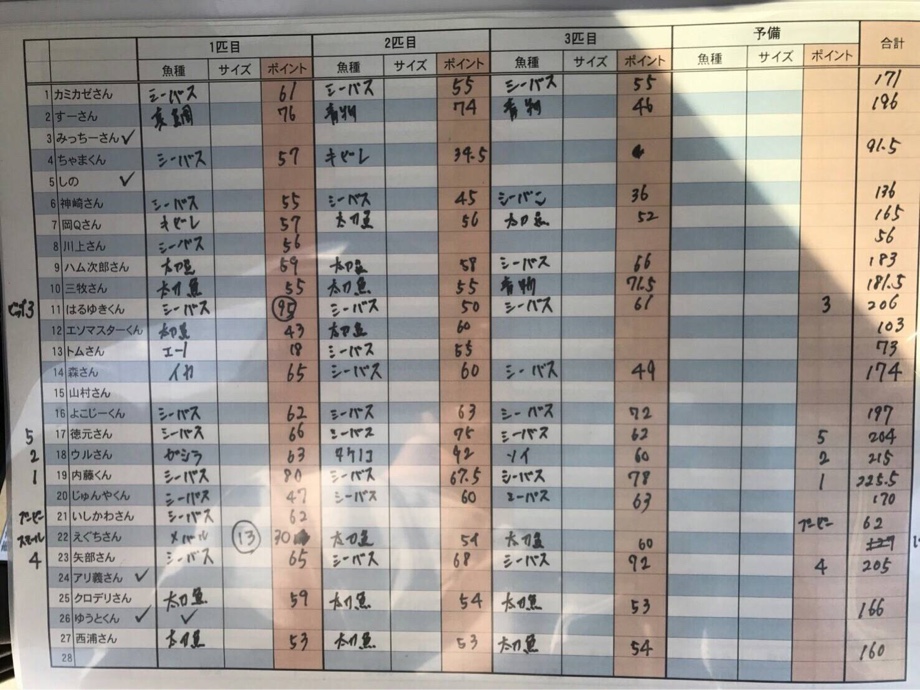 1匹目 2匹目 3匹目 予備 合計
魚種 サイズ ポイント 魚種 サイズ ポイント 魚種 サイズ ポイント 魚種 サイズ ポイント
1 カミカゼさん シーバス 61 シーバス 55 シーバス 55 171
2 すーさん 真鯛 76 青物 74 青物 46 196
3 みっちーさん ✓
4 ちゃまくん シーバス 57 キビレ 34.5 91.5
5 しの ✓
6 神崎さん シーバス 55 シーバス 45 シーバス 36 136
7 岡Qさん キビレ 57 太刀魚 56 太刀魚 52 165
8 川上さん シーバス 56 56
9 ハム次郎さん 太刀魚 59 太刀魚 58 シーバス 66 183
10 三牧さん 太刀魚 55 太刀魚 55 青物 71.5 181.5
11 はるゆきくん シーバス 95 シーバス 50 シーバス 61 3 206
12 エソマスターくん 太刀魚 43 太刀魚 60 103
13 トムさん 18 シーバス 55 73
14 森さん イカ 65 シーバス 60 シーバス 49 174
15 山村さん
16 よこじーくん シーバス 62 シーバス 63 シーバス 72 197
5 17 徳元さん シーバス 66 シーバス 75 シーバス 62 5 204
2 18 ウルさん ガシラ 63 タケノコ 92 ソイ 60 2 215
1 19 内藤くん シーバス 80 シーバス 67.5 シーバス 78 1 225.5
20 じゅんやくん シーバス 47 シーバス 60 シーバス 63 170
ブービー 21 いしかわさん シーバス 62 ブービー 62
スモール 22 えぐちさん メバル 13 30 太刀魚 54 太刀魚 60
4 23 矢部さん シーバス 65 シーバス 68 シーバス 72 4 205
24 アリ義さん ✓
25 クロデリさん 太刀魚 59 太刀魚 54 太刀魚 53 166
26 ゆうとくん ✓ ✓
27 西浦さん 太刀魚 53 太刀魚 53 太刀魚 54 160
28